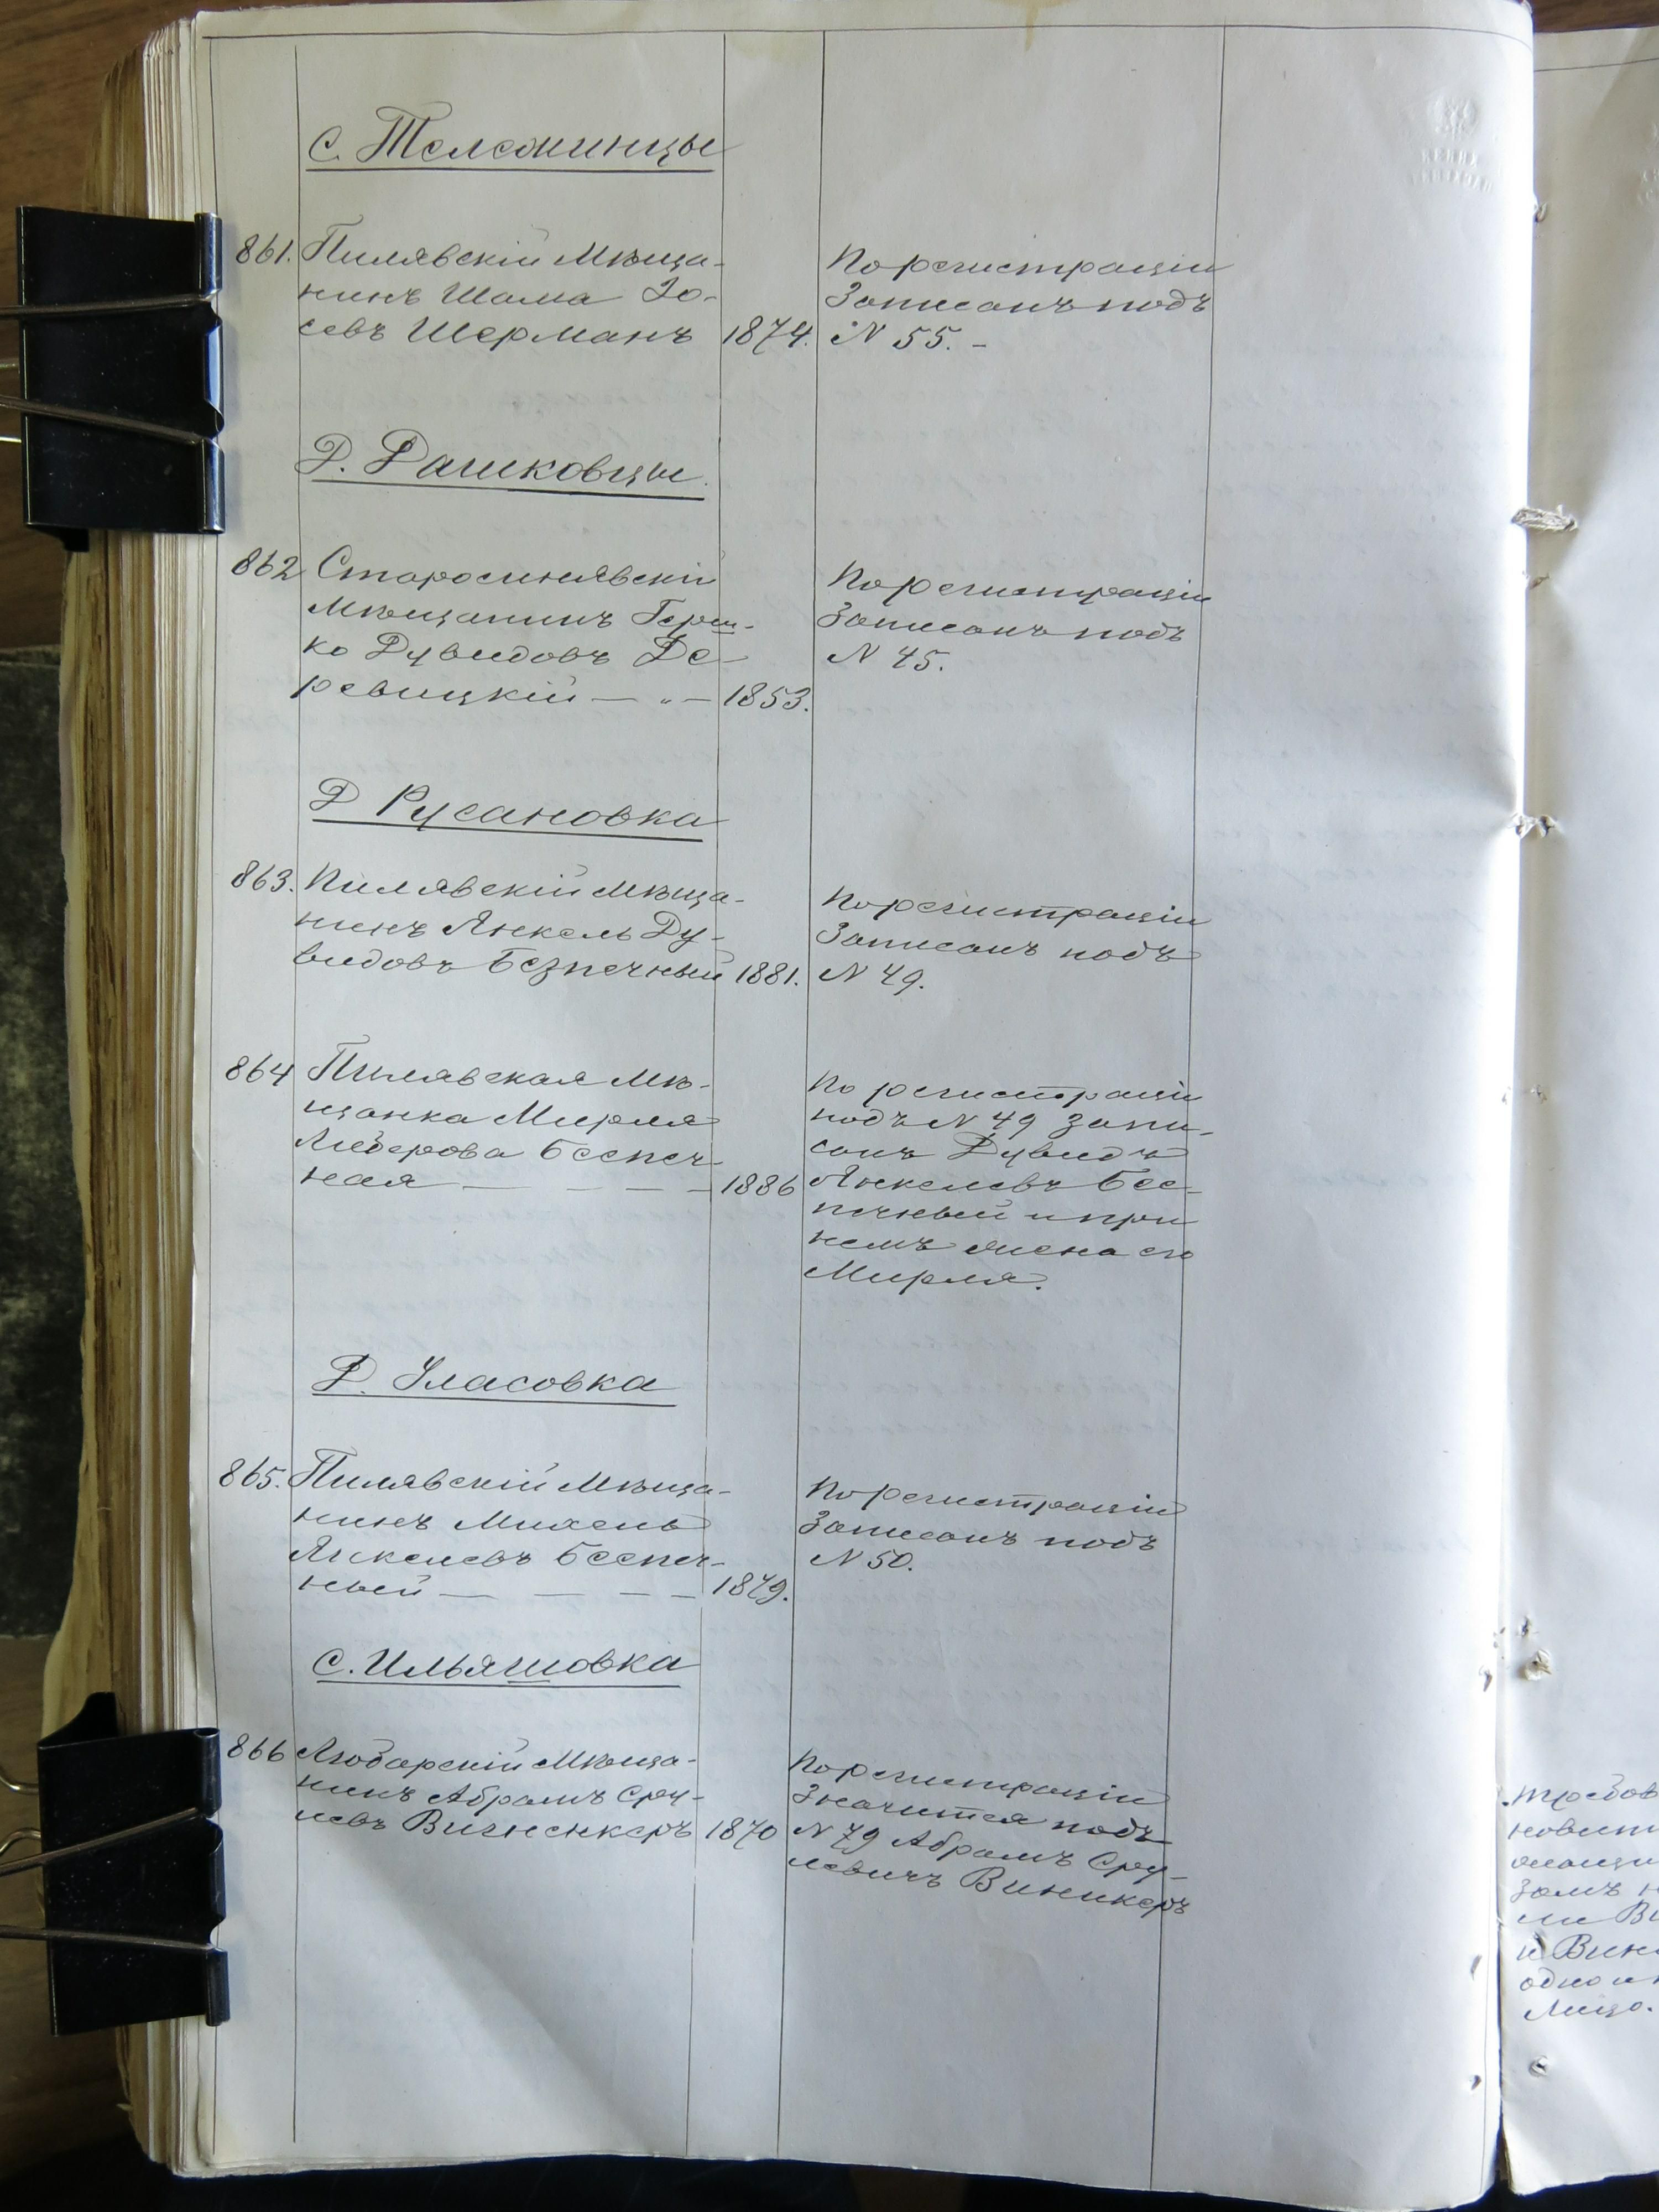 с. Тележинцы
861. Пилявскій Мѣща-
нинъ Шама Іо-
севъ Шерманъ 1874.
По регистраціи
Записанъ подъ
№ 55. -
Д. Дашковцы.
862 Старосинявскій
Мѣщанинъ Герш-
ко Дувидовъ Де-
ревицкій — „ — 1853.
По регистраціи
Записанъ подъ
№ 45.
Д Русановка
863. Пилявскій Мѣща-
нинъ Янкель Ду-
видовъ Безпечный 1881.
По регистраціи
Записанъ подъ
№ 49.
864 Пилявская Мѣ-
щанка Мирля
Лейзерова Беспеч-
ная — — — — 1886
По регистраціи
подъ № 49 Запи-
санъ Дувидъ
Янкелевъ Бес-
печный и при
немъ жена его
Мирля.
Д. Уласовка
865. Пилявскій Мѣща-
нинъ Михель
Янкелевъ Беспеч-
ный — — — — 1879.
По регистраціи
Записанъ подъ
№ 50.
с. Ильяшовка
866 Любарскій Мѣща-
нинъ Абрамъ Сру-
левъ Вигненкеръ 1870
По регистраціи
Значится подъ
№ 79 Абрамъ Сру-
левичъ Виникеръ
одно и
Лицо.